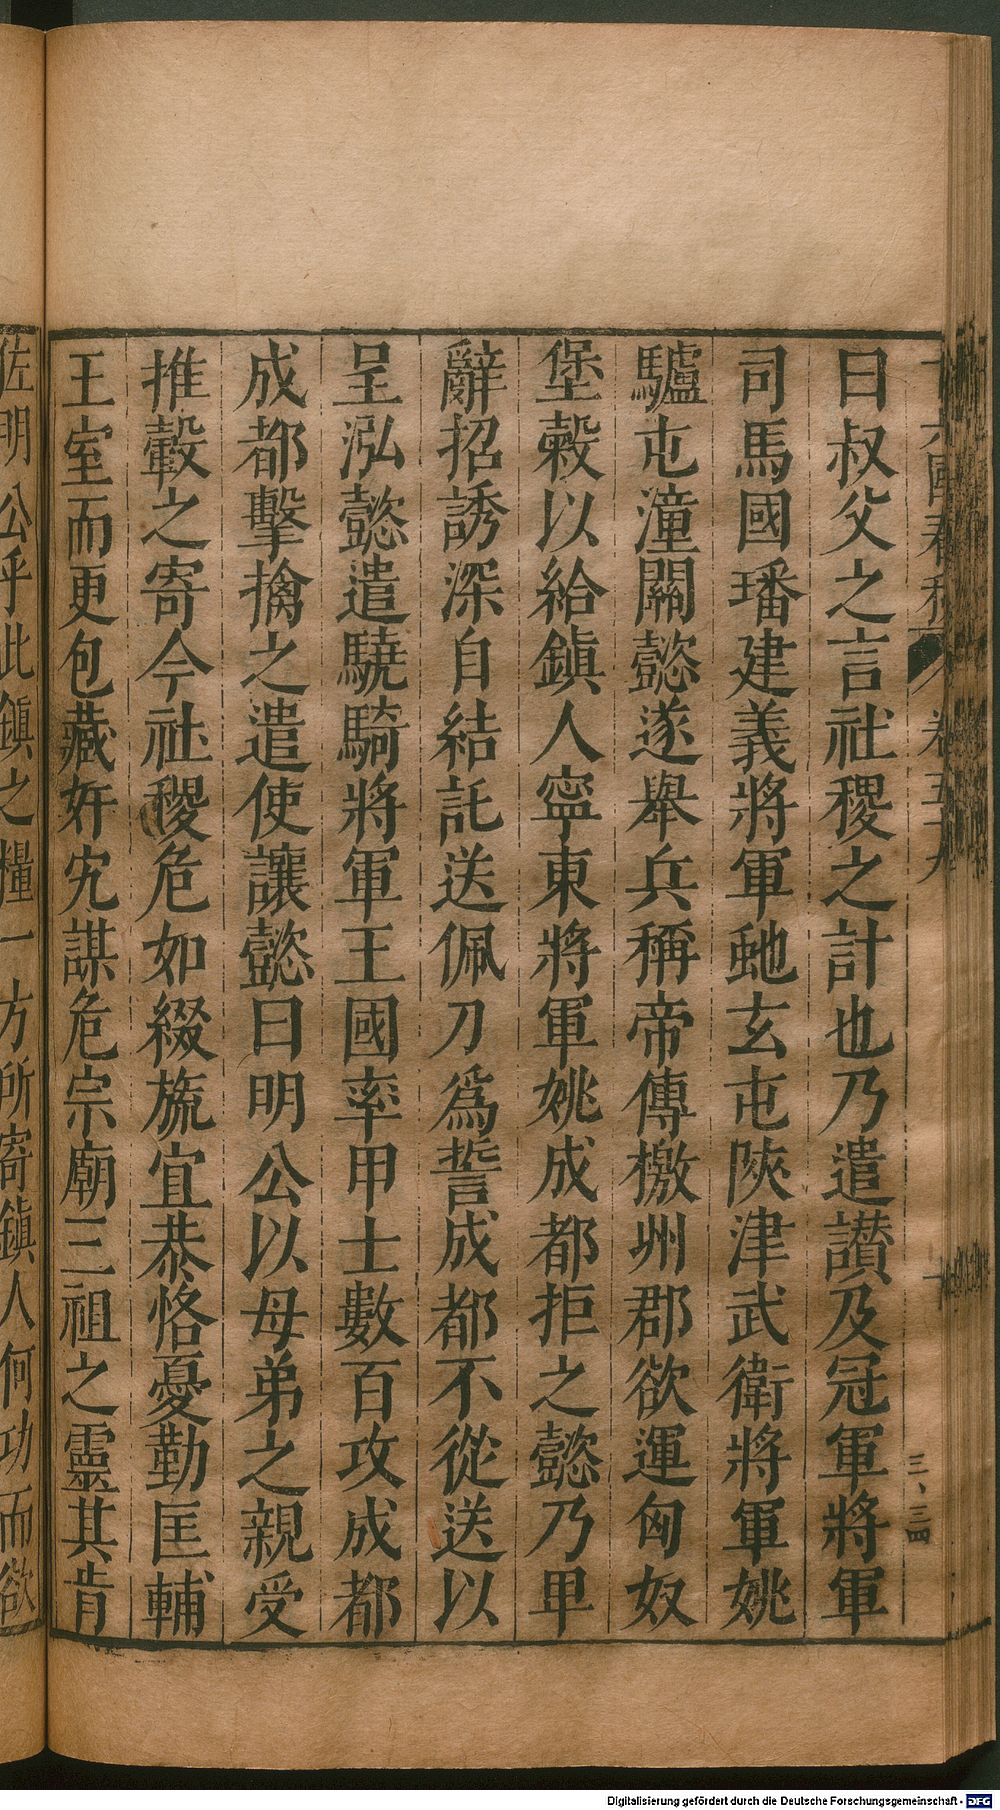 十六國春秋 卷五十九 十
三、三四
曰叔父之言社稷之計也乃遣讃及冠軍將軍
司馬國璠建義將軍虵玄屯陝津武衛將軍姚
驢屯潼關懿遂舉兵稱帝傳檄州郡欲運匈奴
堡穀以給鎮人寧東將軍姚成都拒之懿乃卑
辭招誘深自結託送佩刀爲誓成都不從送以
呈泓懿遣驍騎將軍王國率甲士數百攻成都
成都擊擒之遣使讓懿曰明公以母弟之親受
推轂之寄今社稷危如綴旒宜恭恪憂勤匡輔
王室而更包藏奸宄謀危宗廟三祖之靈其肯
佐明公乎此鎮之糧一方所寄鎮人何功而欲
Digitalisierung gefördert durch die Deutsche Forschungsgemeinschaft - DFG